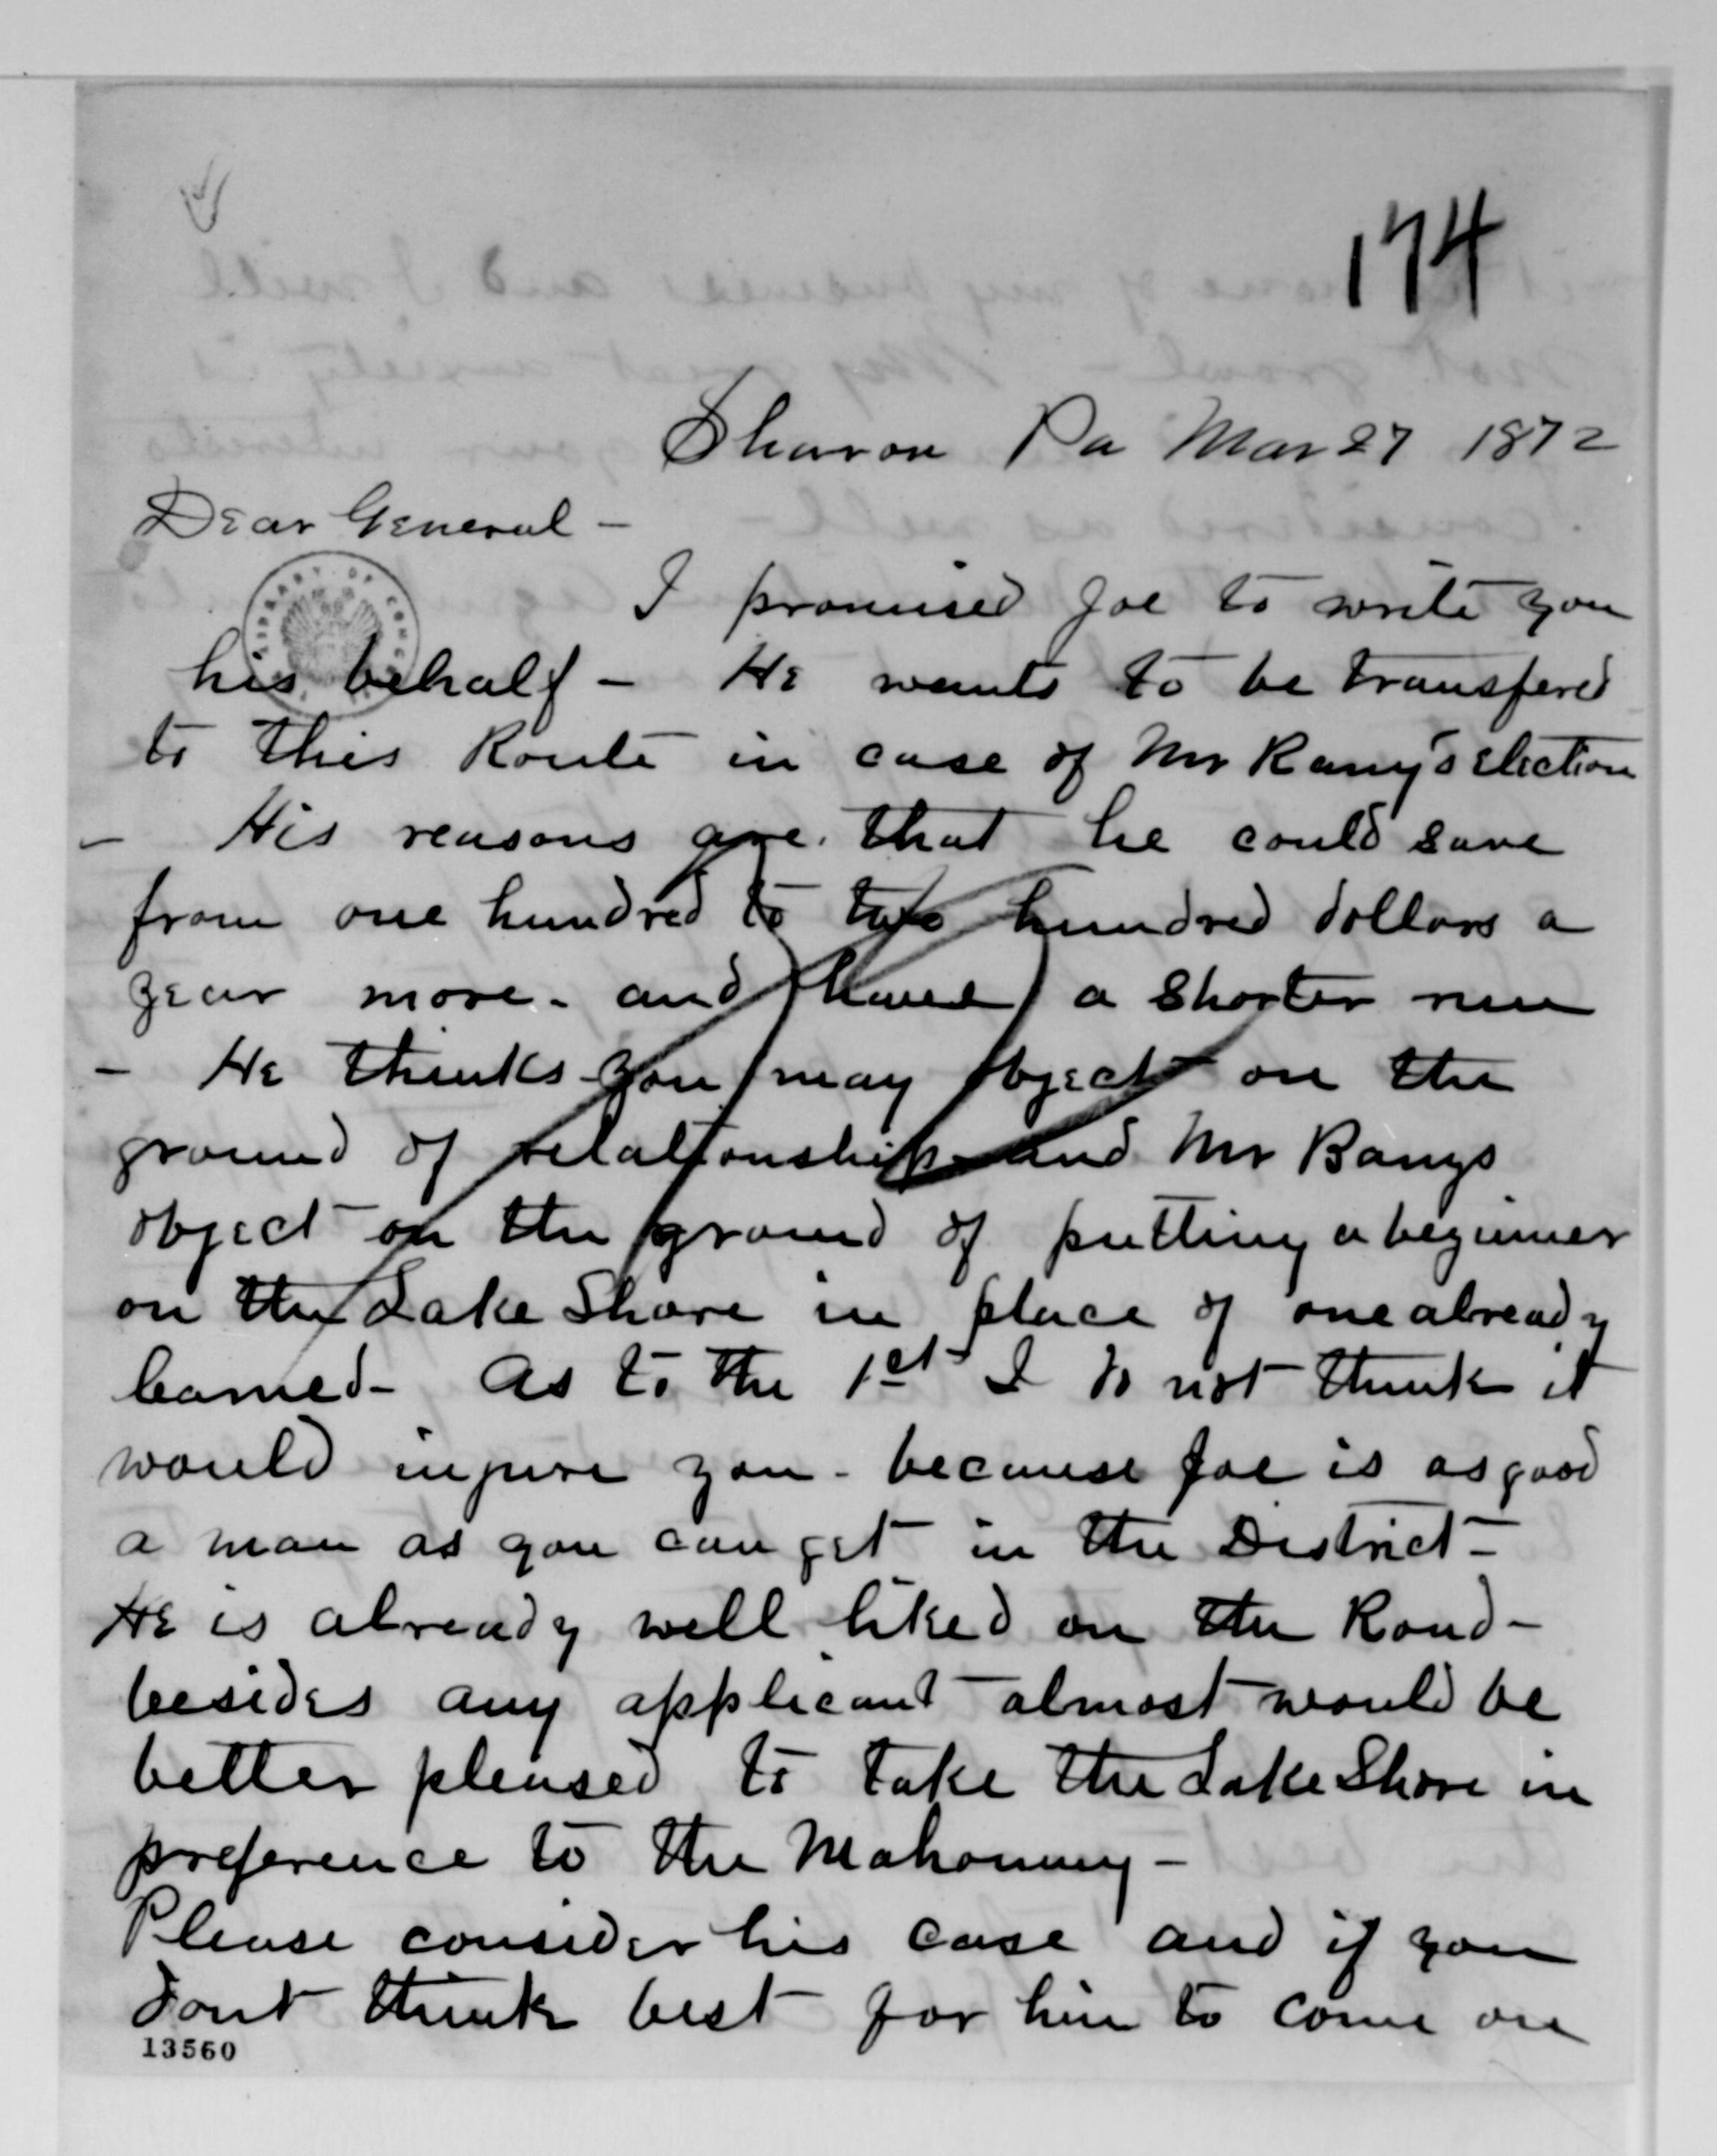 174
Sharon Pa Mar 27 1872
Dear General -
I promised Joe to write you
his behalf - He wants to be transfered
to this Route in case of Mr Ramy's election
- His reasons are that he could save
from one hundred to two hundred dollars a
year more - and have a shorter run
- He thinks you may object on the
ground of relationship and Mr Bangs
object on the ground of putting a beginner
on the Lake Shore in place of one already
learned - As to the 1st I do not think it
would injure you - because Joe is as good
a man as you can get in the District -
He is already well liked on the Road -
besides any applicant almost would be
better pleased to take the Lake Shore in
preference to the Mahoning -
Please consider his case and if you
dont think best for him to come on
13560